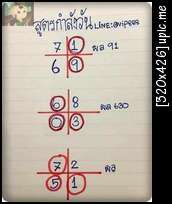 สูตรกำลังวัน LINE:@vipe88
7 1
6 9 ผล 91
6 8 ผล 630
0 3
7 2 ผล
5 1
[520x426] upic.me